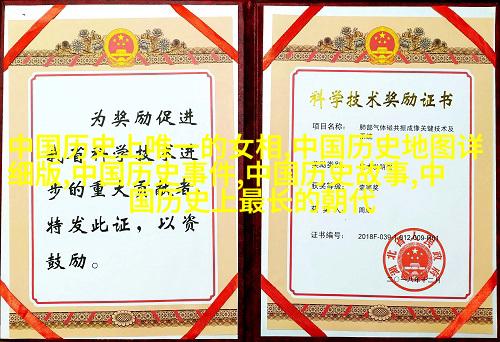 为奖励促进
我省科学技术进
步的重大贡献者，
特发此证，以资
鼓励。
科学技术奖励证书
肺部气体磁共振成像关键技术及
奖励类别：
获奖等级：
证书编号：
二〇一八年十二月
中国历史上唯一的女相,中国历史地图详
细版,中国历史事件,中国历史故事,中
国历史上最长的朝代